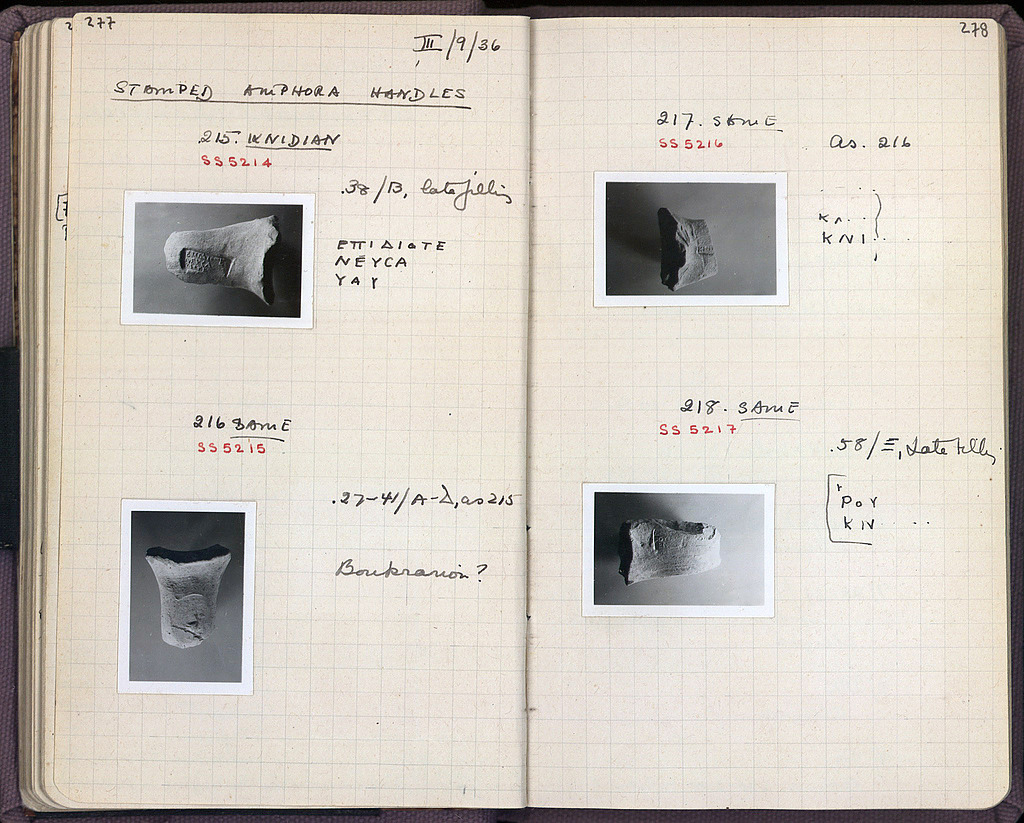 277
III/9/36
STAMPED AMPHORA HANDLES
215. KNIDIAN
SS 5214
.38/B, late filling
ΕΠΙΔΙΟΤΕ
ΝΕΥCΑ
ΥΑΥ
216 SAME
SS 5215
.27-41/A-Δ, as 215
Boukranion?
278
217. SAME
SS 5216
as. 216
ΚΝΙ..
218. SAME
SS 5217
.58/Ξ, Late filling
ΡΟΥ
ΚΝ ..